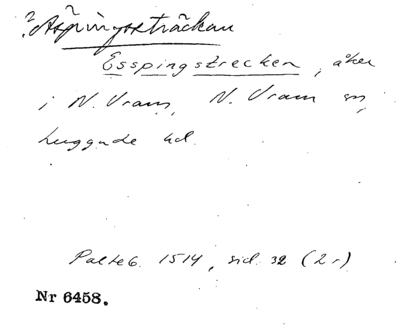 ? Äspingssträckan
Esspingstrecken, åker
i N. Vram, N. Vram sn,
Luggude hd.
Palteb. 1514, sid. 32 (2r)
Nr 6458.